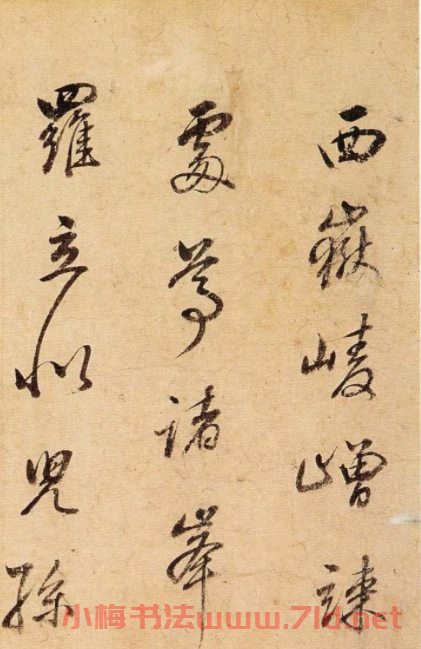 西嶽崚嶒竦
處尊諸峯
羅立似兒孫
小梅书法www.7ld.net